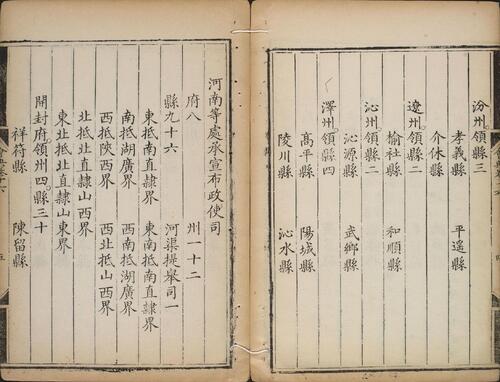 汾州領縣三
孝義縣 平遥縣
介休縣
遼州領縣二
榆社縣 和順縣
沁州領縣二
沁源縣 武鄉縣
澤州領縣四
高平縣 陽城縣
陵川縣 沁水縣
河南等處承宣布政使司
府八 州一十二
縣九十六 河渠提舉司一
東抵南直隷界 東南抵南直隷界
南抵湖廣界 西南抵湖廣界
西抵陝西界 西北抵山西界
北抵北直隷山西界
東北抵北直隷山東界
開封府領州四縣三十
祥符縣 陳留縣